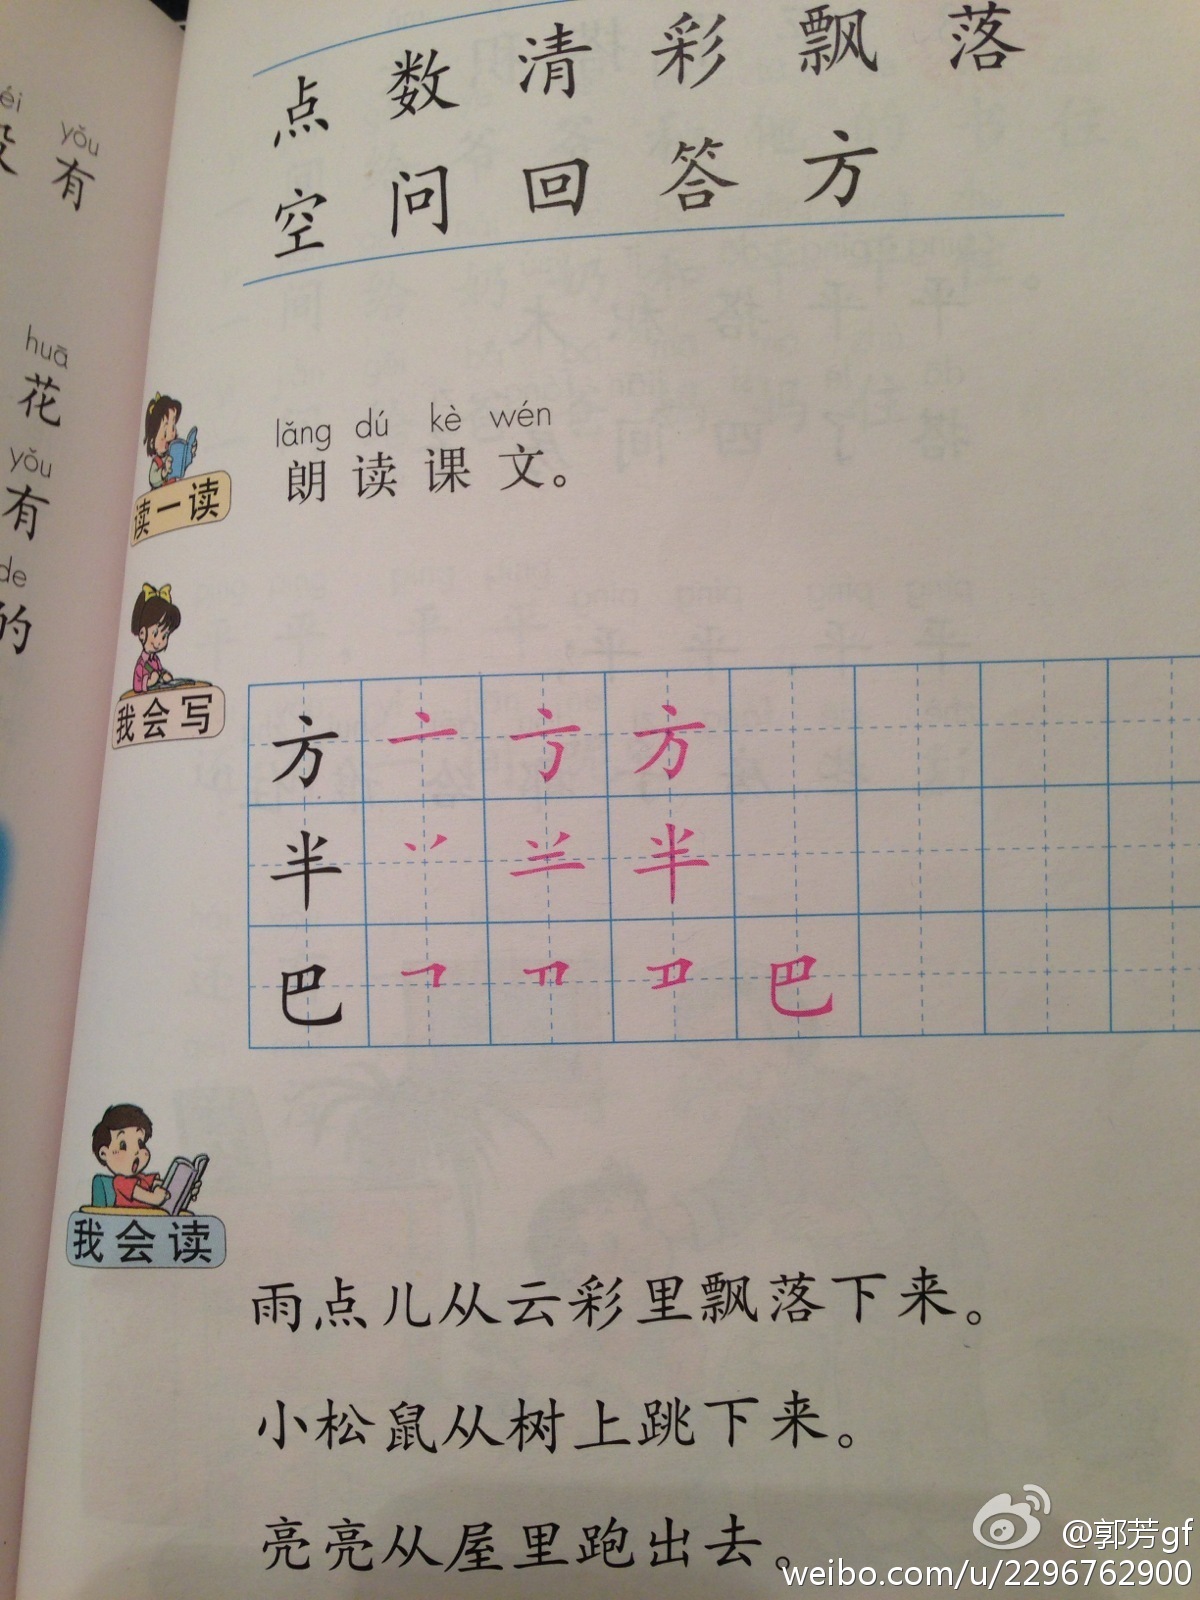 点 数 清 彩 飘 落
空 问 回 答 方
éi yǒu
有
huā
花
yǒu
有
de
的
lǎng dú kè wén
朗 读 课 文。
读一读
我会写
方 亠 亐 方
半 丷 半
巴 𠃍 巴
我会读
雨点儿从云彩里飘落下来。
小松鼠从树上跳下来。
亮亮从屋里跑出去。
@郭芳gf
weibo.com/u/2296762900